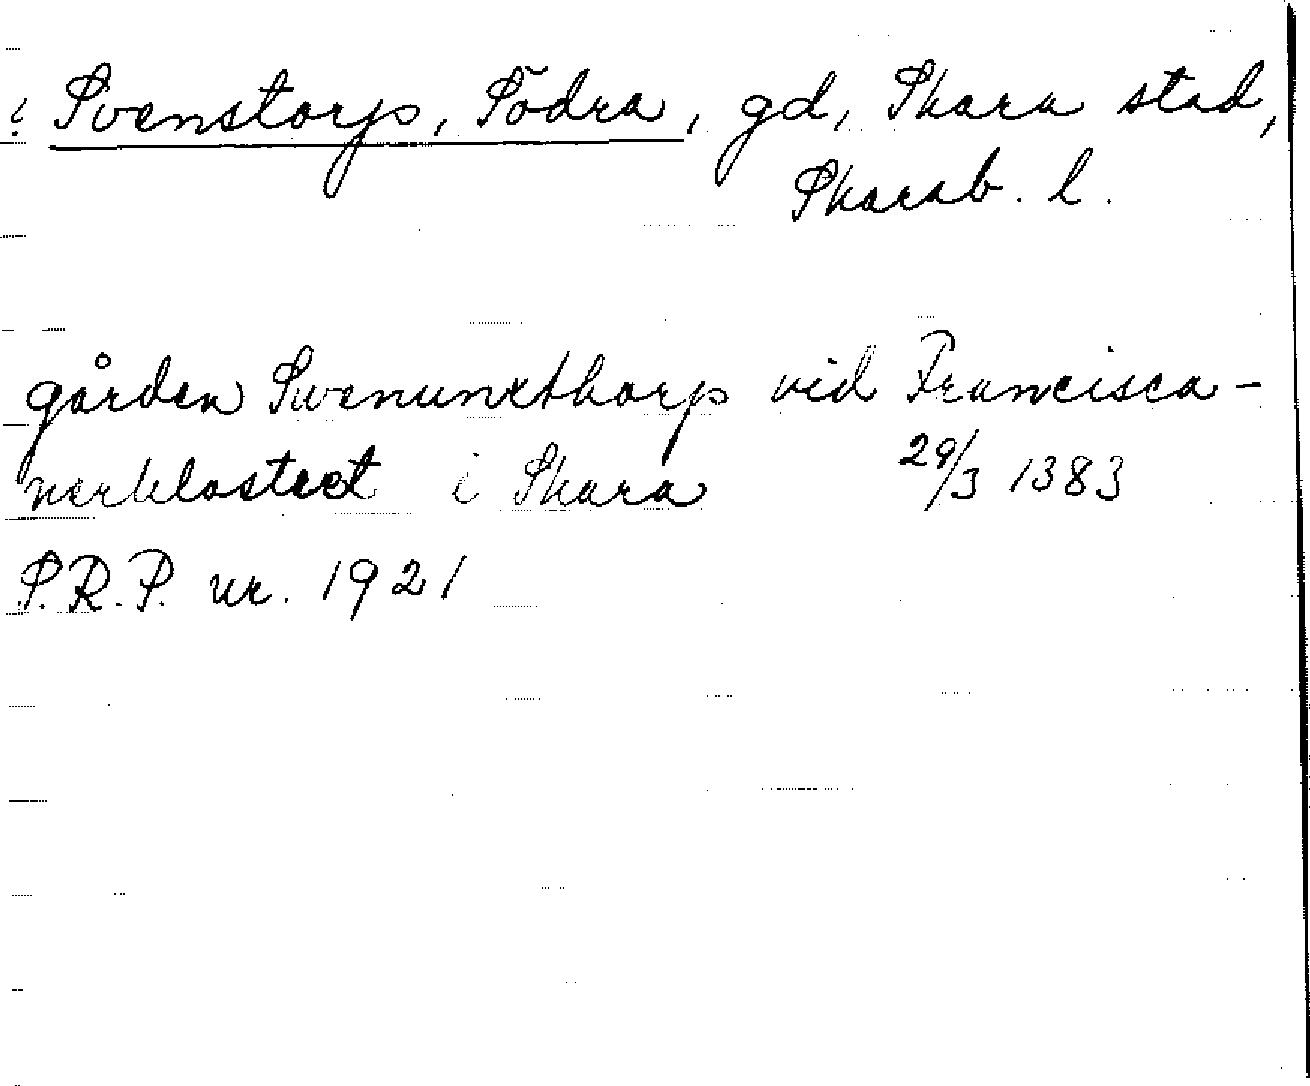 ? Svenstorp, Södra, gd, Skara stad,
Skarab. l.
gården Swenunxthorp vid Francisca-
nerklostret i Skara 29/3 1383
S.R.P. nr. 1921